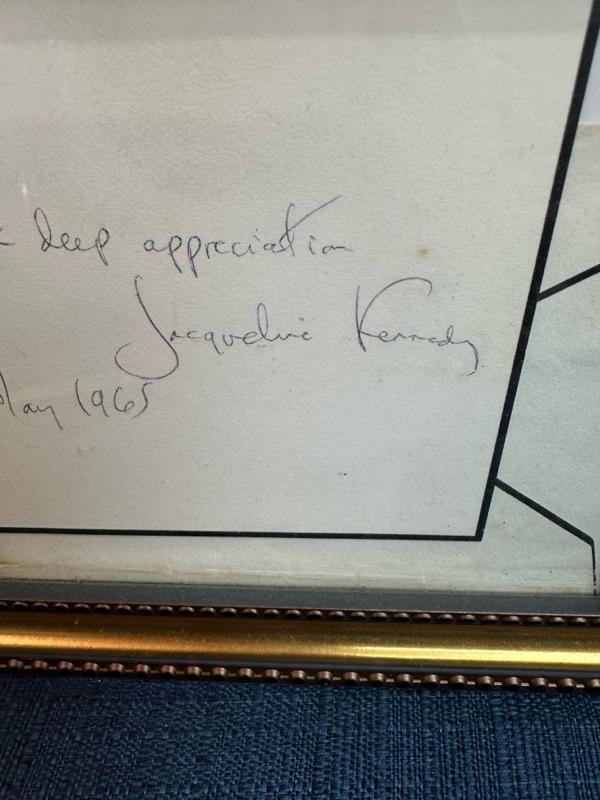 deep appreciation
Jacqueline Kennedy
May 1965